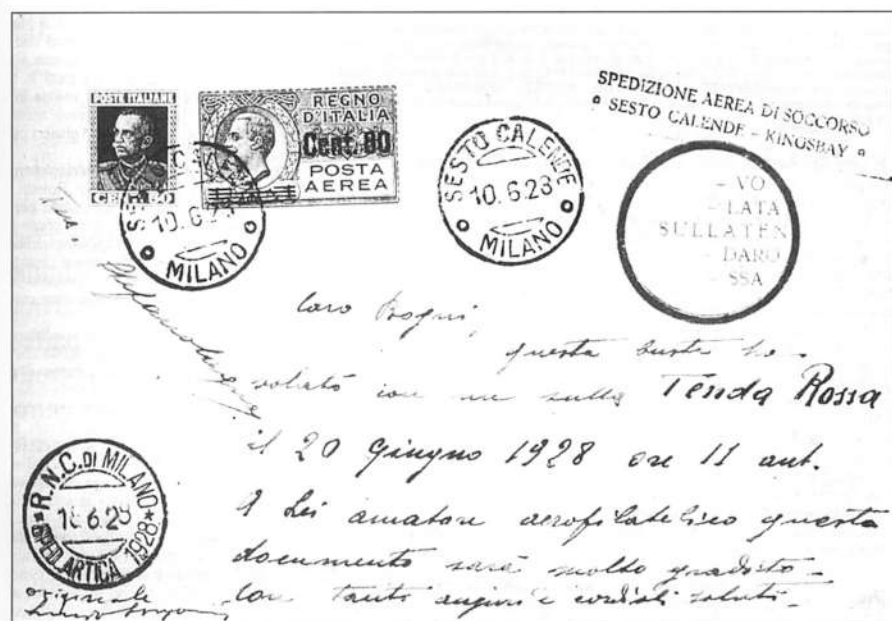 POSTE ITALIANE
CENT. 50
REGNO
D'ITALIA
Cent. 80
POSTA
AEREA
10.6.28
MILANO
SESTO CALENDE
10.6.28
MILANO
SPEDIZIONE AEREA DI SOCCORSO
SESTO CALENDE - KINGSBAY
- VO
- LATA
SULLATEN
- DARO
- SSA
Caro
questa busta ha
volato con me sulla Tenda Rossa
il 20 Giugno 1928 ore 11 ant.
A Lei amatore aerofilatelico questo
documento sarà molto gradito -
Con tanti auguri e cordiali saluti -
R.N.C. DI MILANO
SPED. ARTICA 1928
originale